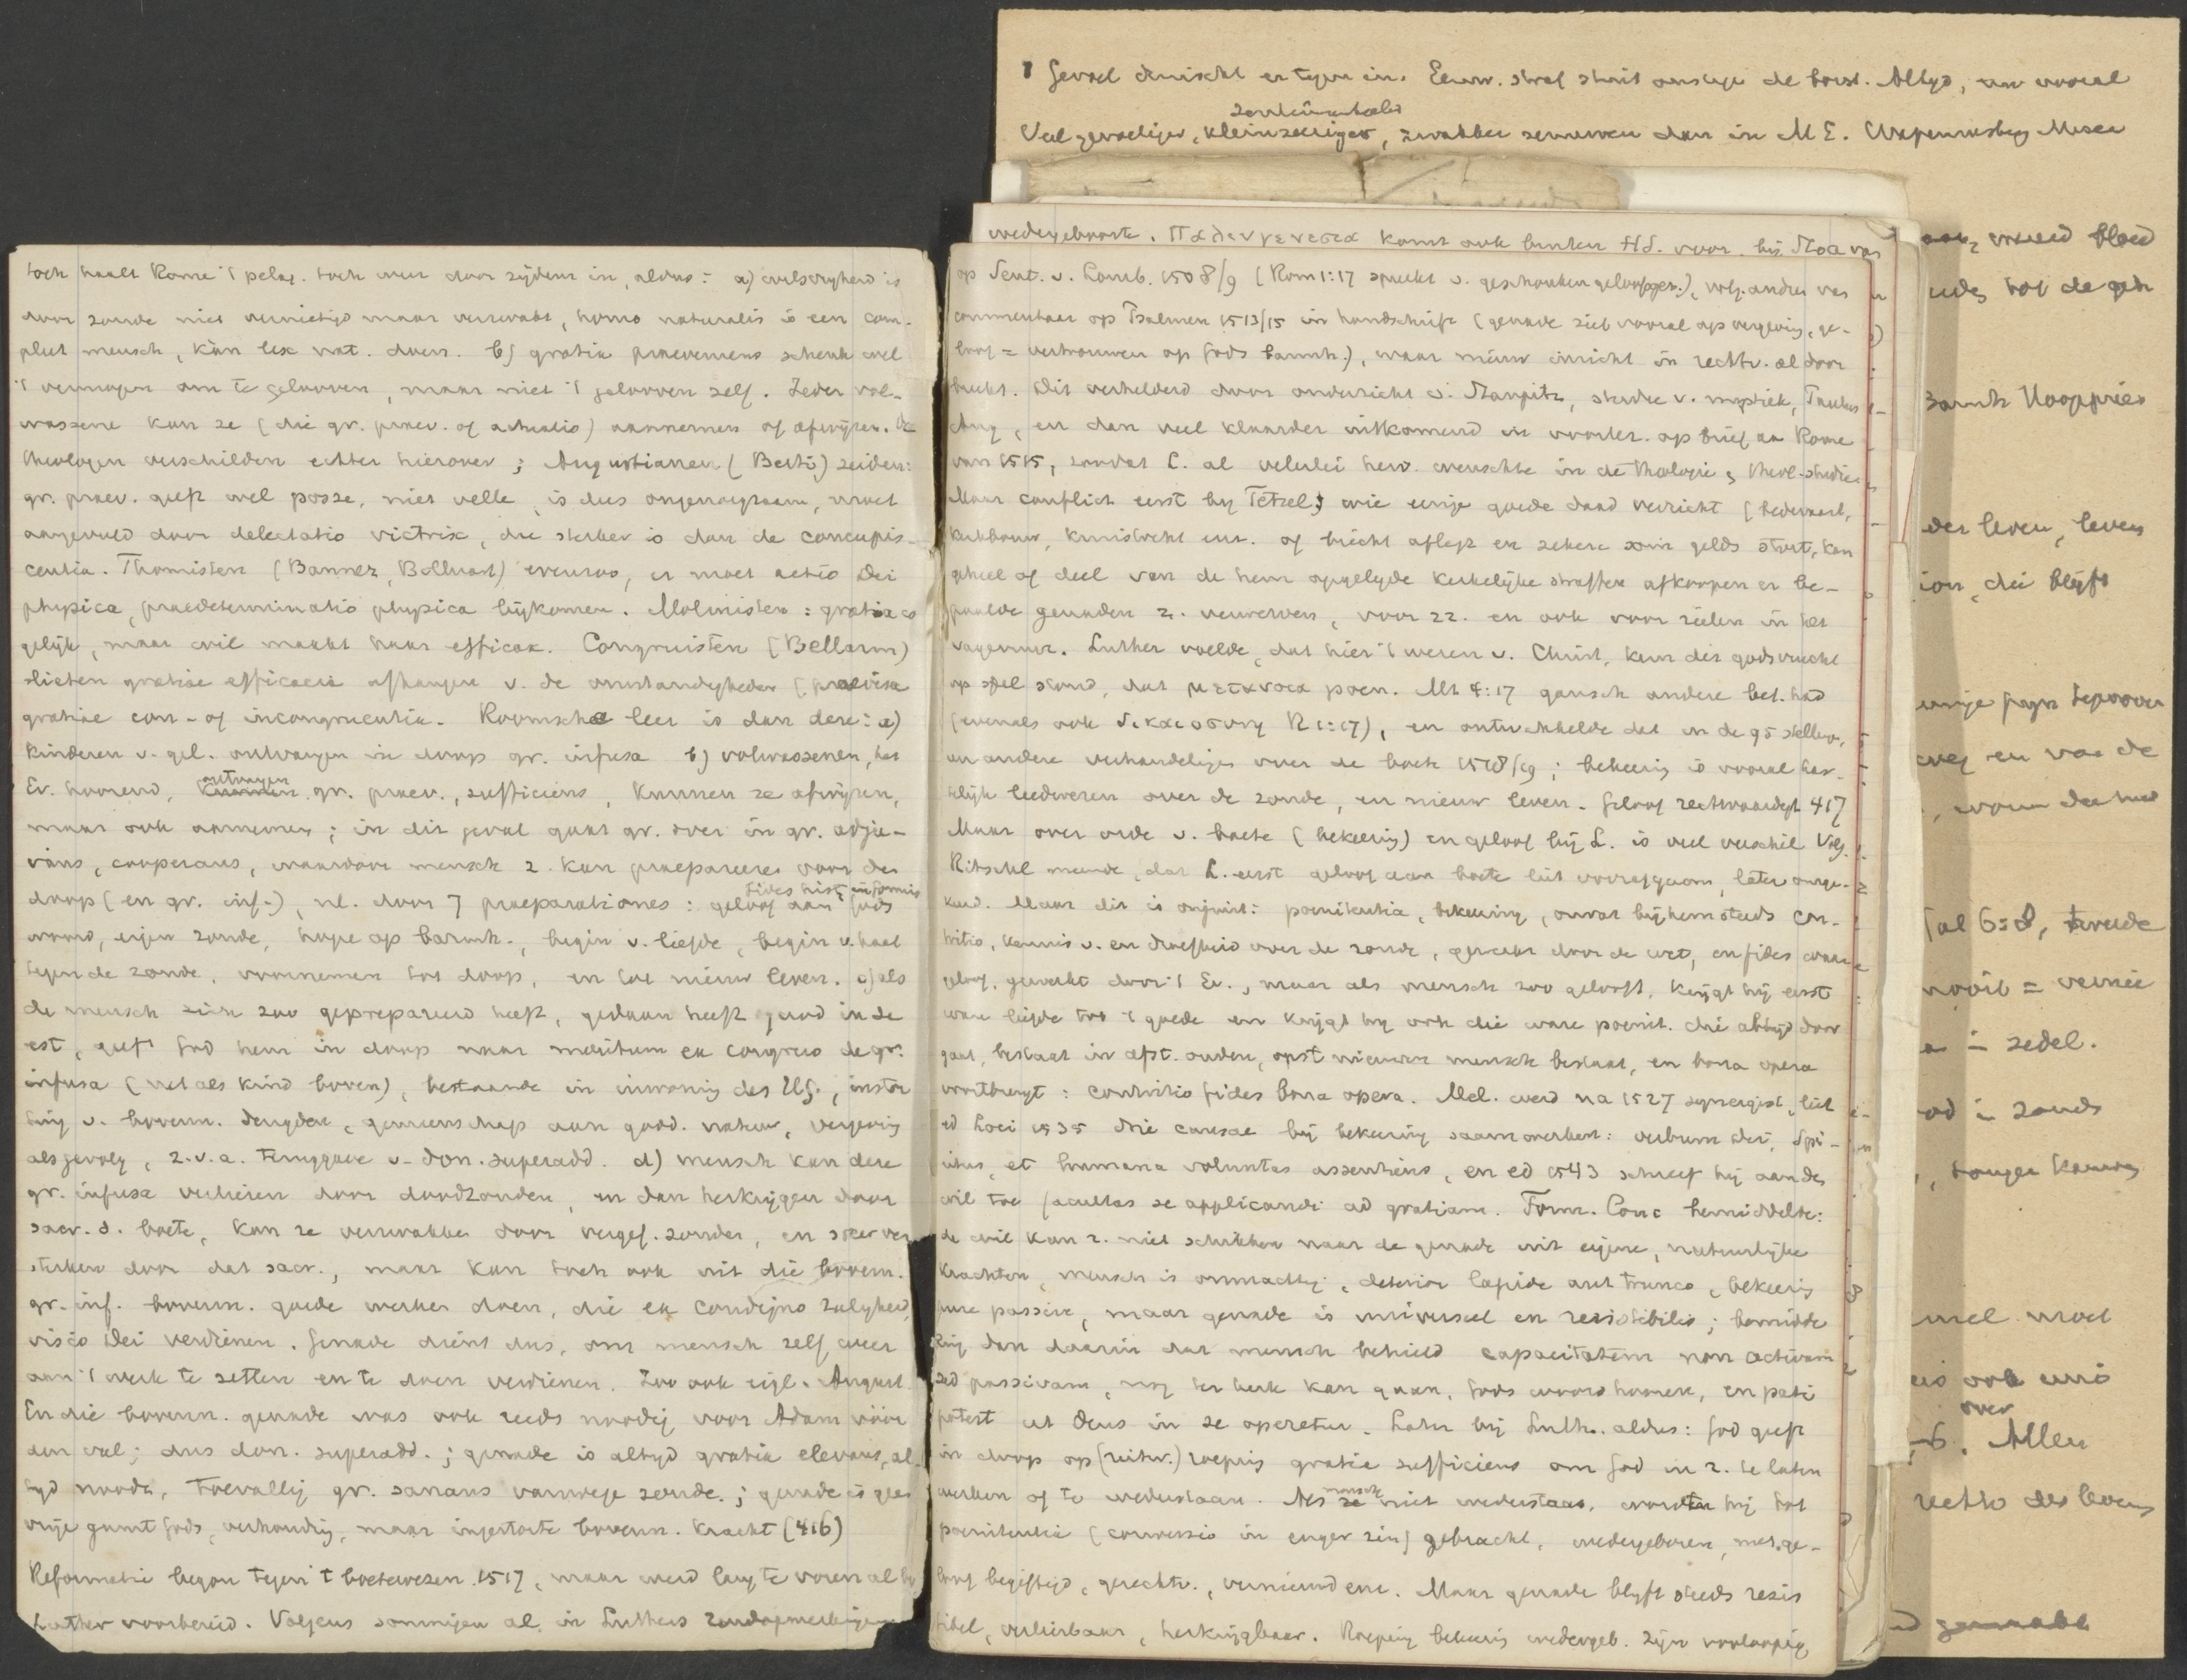 toch haalt Rome 't pelag. toch weer door zijdeur in, aldus: a) wilsvryheid is
door zonde niet vernietigd maar verzwakt, homo naturalis is een com-
pleet mensch, kan lex nat. doen. b) gratia praeveniens schenk wel
't vermogen om te gelooven, maar niet 't gelooven zelf. Ieder vol-
wassene kan ze (die gr. praev. of actualis) aannemen of afwijzen. De
theologen verschilden echter hierover; Augustianen (Berti) zeiden:
gr. praev. geeft wel posse, niet velle, is dus ongenoegzaam, moet
aangevuld door delectatio victrix, die sterker is dan de concupis-
centia. Thomisten (Bannez, Billuart) evenzoo, er moet actio Dei
physica, praedeterminatio physica bijkomen. Molinisten: gratia is
gelijk, maar wil maakt haar efficax. Congruisten (Bellarm)
lieten gratiae efficacia afhangen v. de omstandigheden (praevisa
gratiae con- of incongruentia. Roomsche leer is dan deze: a)
kinderen v. gel. ontvangen in doop gr. infusa b) volwassenen, het
Ev. hoorend, ontvangen gr. praev., sufficiens, kunnen ze afwijzen,
maar ook aannemen; in dit geval gaat gr. over in gr. adju-
vans, cooperans, waardoor mensch z. kan praepareeren voor de
doop (en gr. inf.), nl. door 7 praeparationes: geloof aan Gods
fides hist. informis
woord, eigen zonde, hope op barmh., begin v. liefde, begin v. haat
tegen de zonde, voornemen tot doop, en tot nieuw leven. c) als
de mensch zich zoo geprepareerd heeft, gedaan heeft quod in se
est, geeft God hem in doop naar meritum ex congruo de gr.
infusa (net als kind boven), bestaande in inwoning des H.G., instor
ting v. bovenn. deugden, gemeenschap aan godd. natuur, vergeving
als gevolg, z.v.a. teruggave v. don. superadd. d) mensch kan deze
gr. infusa verliezen door doodzonden, en dan herkrijgen door
sacr. d. boete, kan ze verzwakken door vergef. zonden, en weer ver
sterken door dat sacr., maar kan toch ook uit die bovenn.
gr. inf. bovenn. goede werken doen, die ex condigno zaligheid,
visio Dei verdienen. Genade dient dus, om mensch zelf weer
aan 't werk te zetten en te doen verdienen. Zoo ook eigl. August.
En die bovenn. genade was ook reeds noodig voor Adam vóór
den val; dus don. superadd.; genade is altyd gratia elevans, al-
tyd noodz., toevallig gr. sanans vanwege zonde.; genade is geen
vrije gunst Gods, verhouding, maar ingestorte bovenn. kracht (416)
Reformatie begon tegen 't boetewezen 1517, maar werd lang te voren al by
Luther voorbereid. Volgens sommigen al in Luthers randopmerkingen
1 Gevoel druischt er tegen in. Eeuw. straf stuit ons tege de borst. Altyd, nu vooral
sentimenteeler
Veel gevoeliger, kleinzeeriger, zwakker zenuwen dan in M E. Wapenmsbeg Musea
wedergeboorte. Παλινγενεσια komt ook buiten H.S. voor. bij Stoa van
op Sent. v. Lomb. 1508/9 (Rom 1:17 spreekt v. geschonken geloofsger.), volg. andren van
commentaar op Psalmen 1513/15 in handschrift (genade ziet vooral op vergeving, ge-
loof = vertrouwen op Gods barmh.), waar nieuw inzicht in rechtv. al door
breekt. Dit verhelderd door onderricht v. Staupitz, studie v. mystiek, Tauler
Aug, en dan veel klaarder uitkomend in voorlez. op brief aan Rome
van 1515, zoodat L. al velerlei herv. wenschte in de theologie, theol. studie
Maar conflict eerst by Tetzel; wie eenige goede daad verricht (bedevaart,
kerkbouw, kruistocht enz. of biecht aflegt en zekere som gelds stort, kan
geheel of deel van de hem opgelegde kerkelijke straffen afkoopen en be-
paalde genaden z. verwerven, voor zz. en ook voor zielen in het
vagevuur. Luther voelde, dat hier 't wezen v. Christ. kern der godsvrucht
op spel stond, dat μετανοια poen. Mt 4:17 gansch andere bet. had
(evenals ook δικαιοσυνη R 1:17), en ontwikkelde dat in de 95 stelling,
en andere verhandeligen over de boete 1518/19; bekeering is vooral har-
telijk leedwezen over de zonde, en nieuw leven. Geloof rechtvaardigt 417
Maar over orde v. boete (bekeering) en geloof bij L. is veel verschil Volg.
Ritschl meende, dat L. eerst geloof aan boete liet voorafgaan, later omge-
keerd. Maar dit is onjuist: poenitentia, bekeering, omvat bij hem steeds con-
tritio, kennis v. en droefheid over de zonde, gewerkt door de wet, en fides ware
geloof, gewerkt door 't Ev., maar als mensch zoo gelooft, krijgt hij eerst
ware liefde tot 't goede en krijgt hy ook die ware poenit. die altijd door
gaat, bestaat in afst. ouden, opst. nieuwen mensch bestaat, en bona opera
voortbrengt: contritio fides bona opera. Mel. werd na 1527 synergist, liet
ed Loci 1535 drie causae bij bekeering saamwerken: verbum Dei, Spi-
ritus, et humana voluntas assentiens, en ed 1543 schreef hij aan den
wil toe facultas se applicandi ad gratiam. Form. Conc bemiddelde:
de wil kan z. niet schikken naar de genade uit eigene, natuurlijke
krachten, mensch is onmachtig, deterior lapide aut trunco, bekeering
pure passive, maar genade is universeel en resistibilis; bemidde
ling dan daarin dat mensch behield capacitatem non activam
sed passivam, nog ter kerk kan gaan, Gods woord hooren, en pati
potest ut Deus in se operetur. Later bij Luth. aldus: God geeft
in doop op (uitw.) roeping gratia sufficiens om God in z. te laten
werken of te wederstaan. Als mensch niet wederstaat, wordt hij tot
poenitentia (conversio in enger zin) gebracht, wedergeboren, met ge-
loof begiftigd, gerechtv., vernieuwd enz. Maar genade blyft steeds resis
tibel, verliesbaar, herkrijgbaar. Roeping bekeering wedergeb. zijn voorloopig
tot de
der leven, leven
die blijft
en van de
Gal 6:8, tweede
nooit =
= zedel.
zonde
moet
ook
over
Allen
des levens